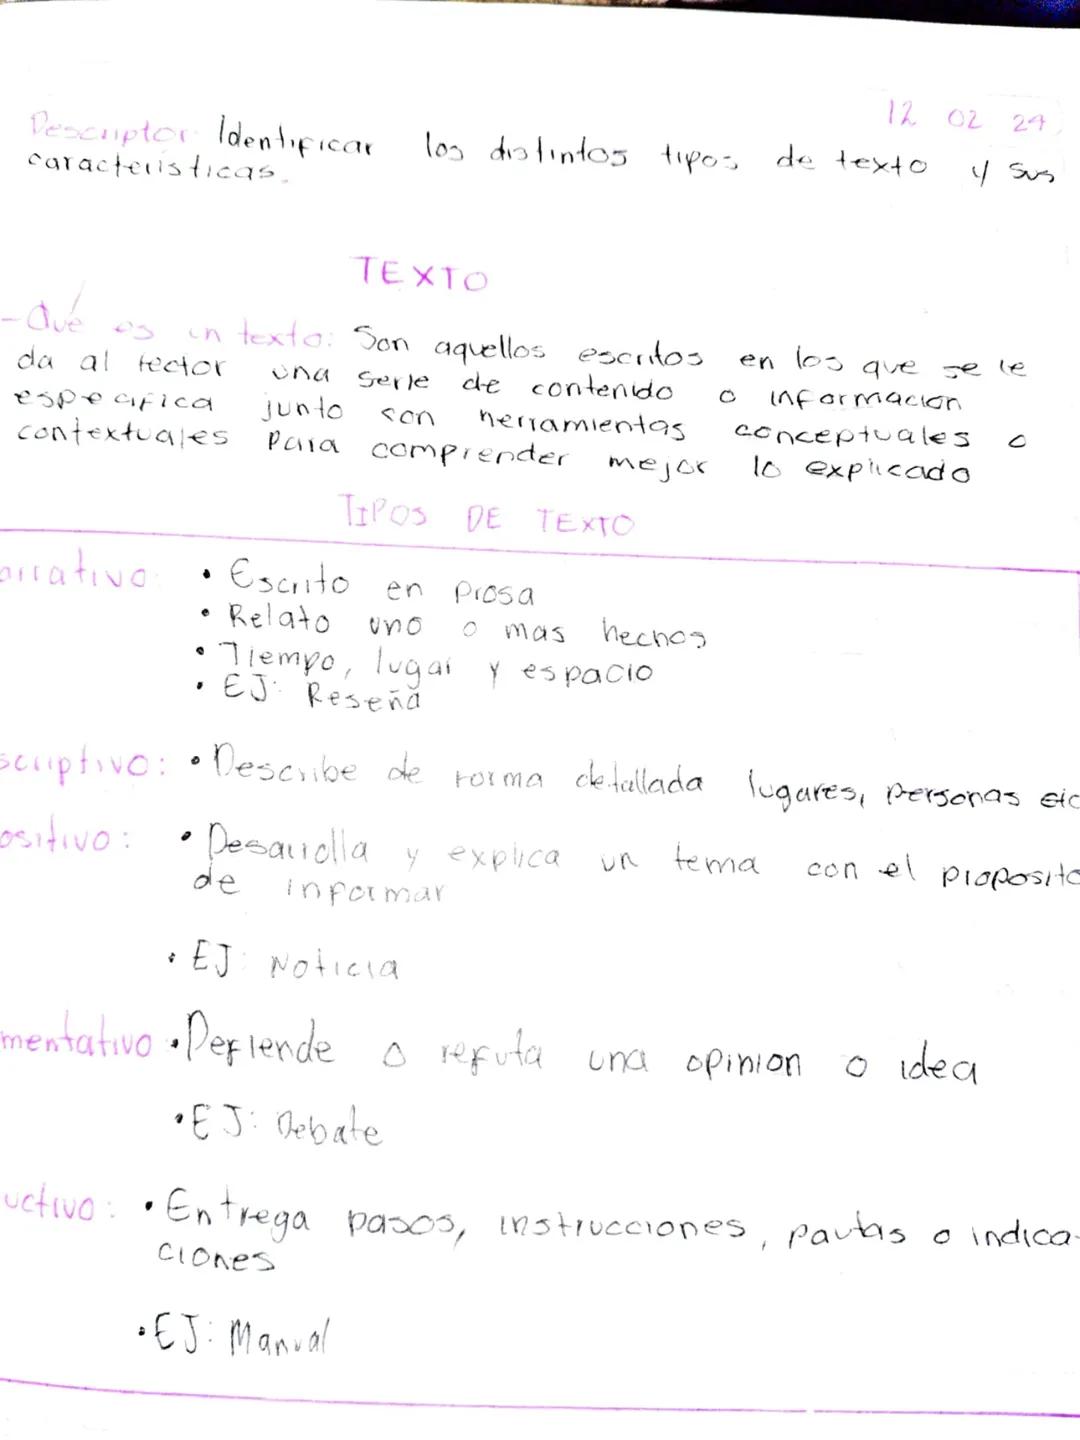 12 02 24
Descriptor: Identificar los distintos tipos de texto y sus
caracteristicas.
TEXTO
-Qué es un texto: Son aquellos escritos en los que se le
da al lector una serie de contenido o informacion
especifica junto con herramientas conceptuales o
contextuales para comprender mejor lo explicado
TIPOS DE TEXTO
arrativo: • Escrito en prosa
• Relato uno o mas hechos
• Tiempo, lugar y espacio
• EJ: Reseña
scriptivo: • Describe de forma detallada lugares, personas etc
ositivo: • Desarrolla y explica un tema con el proposito
de informar
• EJ: Noticia
mentativo • Defiende o refuta una opinion o idea
• EJ: Debate
uctivo: • Entrega pasos, instrucciones, pautas o indica-
ciones
• EJ: Manual